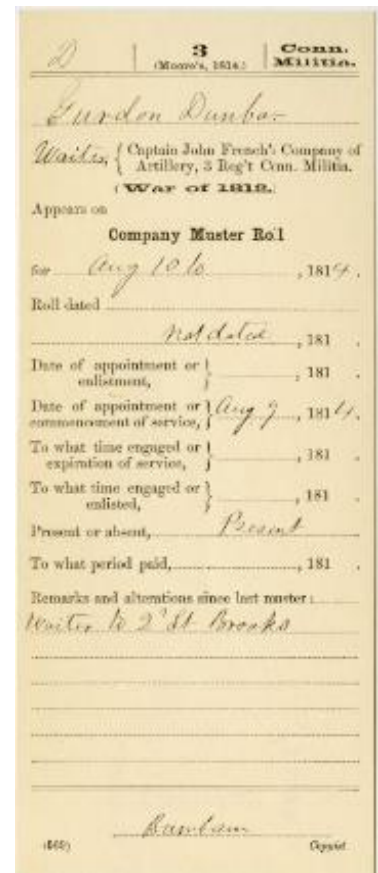 D | 3 | Conn.
(Moore's, 1814.) Militia.
Gurdon Dunbar
Waiter, { Captain John French's Company of
Artillery, 3 Reg't Conn. Militia.
(War of 1812.)
Appears on
Company Muster Roll
for Aug 10 , 1814.
Roll dated
Not dated , 181 .
Date of appointment or }
enlistment, , 181 .
Date of appointment or } Aug 9 , 1814.
commencement of service,
To what time engaged or }
expiration of service, , 181 .
To what time engaged or }
enlisted, , 181 .
Present or absent, Present
To what period paid, , 181 .
Remarks and alterations since last muster:
Waiter to 2d Lt Brooks
Copyist